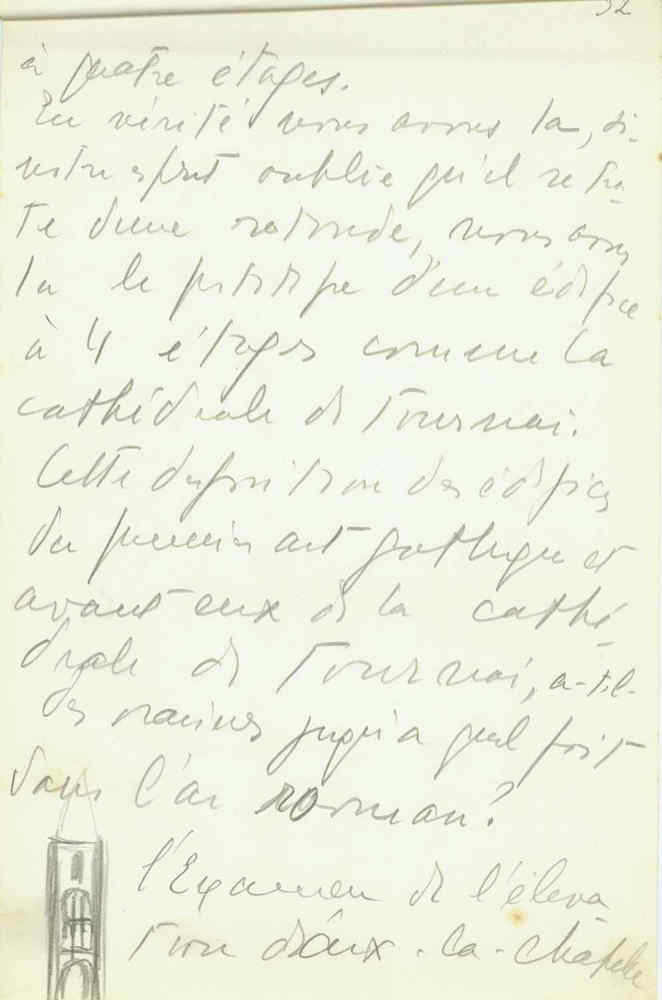 32
à quatre étages.
En vérité vous avons la, si
votre esprit oublie qu'il se trai-
te d'une rotonde, vous avons
la le prototype d'un édifice
à 4 étages comme la
cathédrale de Tournai.
Cette definition des édifices
du premier art gothique et
avant eux de la cathé-
drale de Tournai, a-t-il-
des racines jusqu'a quel point
dans l'art roman?
l'Examen de l'éleva-
tion d'Aix-la-chapelle